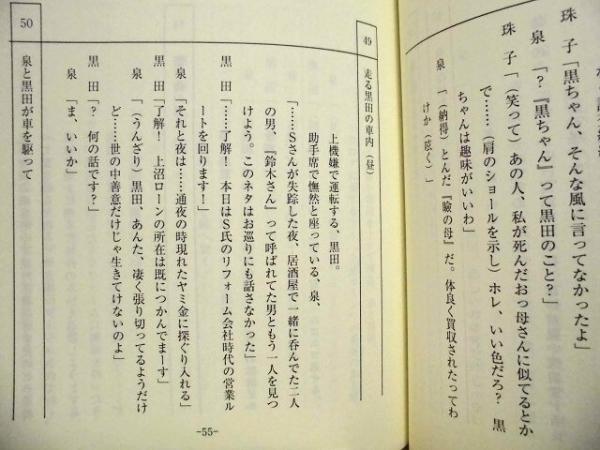 珠 子「黒ちゃん、そんな風に言ってなかったよ」
泉 「?『黒ちゃん』って黒田のこと?」
珠 子「(笑って)あの人、私が死んだおっ母さんに似てるとか
で……(肩のショールを示し)ホレ、いい色だろ? 黒
ちゃんは趣味がいいわ」
泉 「(納得)とんだ『瞼の母』だ。体良く買収されたってわ
けか(呟く)」
49 走る黒田の車内(昼)
上機嫌で運転する、黒田。
助手席で憮然と座っている、泉、
「……Sさんが失踪した夜、居酒屋で一緒に呑んでた二人
の男、『鈴木さん』って呼ばれてた男ともう一人を見つ
けよう。このネタはお巡りにも話さなかった」
黒 田「……了解! 本日はS氏のリフォーム会社時代の営業ル
ートを回ります!」
泉 「それと夜は……通夜の時現れたヤミ金に探ぐり入れる」
黒 田「了解! 上沼ローンの所在は既につかんでまーす」
泉 「(うんざり)黒田、あんた、凄く張り切ってるようだけ
ど……世の中善意だけじゃ生きてけないのよ」
黒 田「? 何の話です?」
泉 「ま、いいか」
50 泉と黒田が車を駆って
-55-